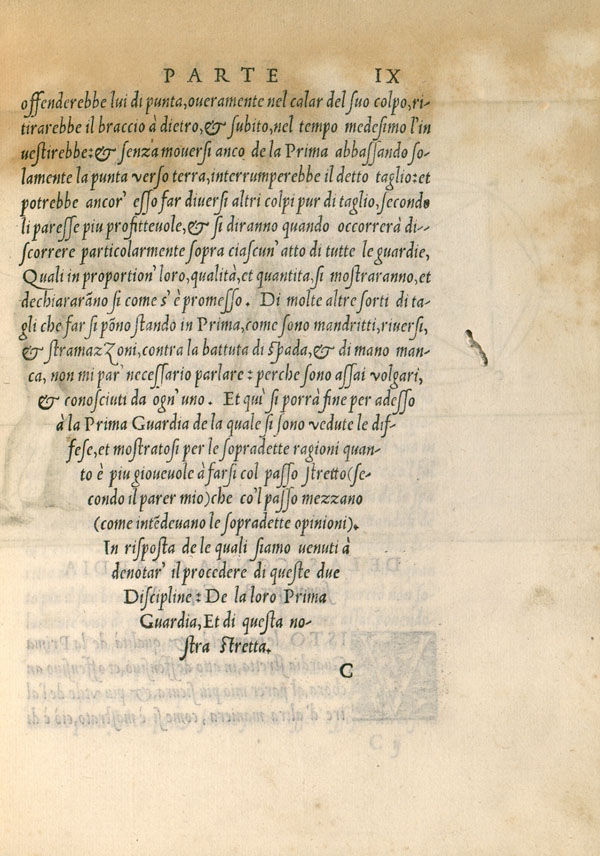 PARTE IX
offenderebbe lui di punta, oueramente nel calar del suo colpo, ri-
tirarebbe il braccio à dietro, & subito, nel tempo medesimo l'in
uestirebbe: & senza mouersi anco de la Prima abbassando so-
lamente la punta verso terra, interrumperebbe il detto taglio: et
potrebbe ancor' esso far diuersi altri colpi pur di taglio, secondo
li paresse piu profitteuole, & si diranno quando occorrerà di-
scorrere particolarmente sopra ciascun' atto di tutte le guardie,
Quali in proportion' loro, qualità, et quantita, si mostraranno, et
dechiararāno si come s'è promesso. Di molte altre sorti di ta-
gli che far si pōno stando in Prima, come sono mandritti, riuersi,
& stramazzoni, contra la battuta di spada, & di mano man-
ca, non mi par' necessario parlare: perche sono assai volgari,
& conosciuti da ogn' uno. Et quì si porrà fine per adesso
à la Prima Guardia de la quale si sono vedute le dif-
fese, et mostratosi per le sopradette ragioni quan-
to è piu gioueuole à farsi col passo stretto (se-
condo il parer mio) che co'l passo mezzano
(come intēdeuano le sopradette opinioni).
In risposta de le quali siamo venuti à
denotar' il procedere di queste due
Discipline: De la loro Prima
Guardia, Et di questa no-
stra stretta.
C